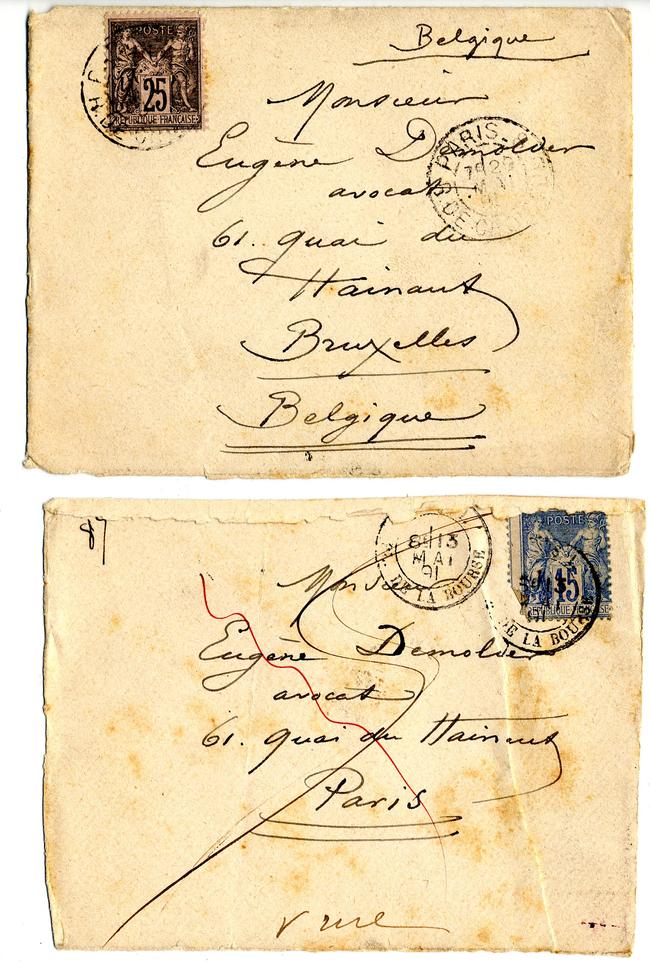 Belgique
POSTE
25
REPUBLIQUE FRANÇAISE
Monsieur
Eugène Demolder
PARIS
MAI
avocat
61. quai du
Hainaut
Bruxelles
Belgique
87
8E 13
MAI
91
DE LA BOURSE
POSTE
15
REPUBLIQUE FRANÇAISE
DE LA BOU
Monsieur
Eugène Demolder
avocat
61. quai du Hainaut
Paris